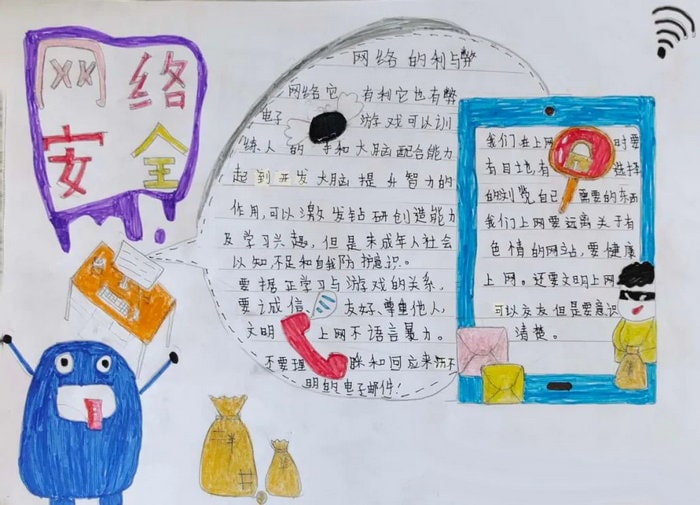 网络
安全
网络的利与弊
网络它 有利它也有弊
电子 游戏可以训
练人的 手和大脑配合能力
起到开发大脑提升智力的
作用,可以激发钻研创造能力
及学习兴趣,但是未成年人社会
以知不足和自我防护意识。
要摆正学习与游戏的关系,
要诚信、 友好、尊重他人,
文明 上网不语言暴力。
不要理 睬和回应来历不
明的电子邮件!
我们在上网 时要
有目地有 选择
的浏览自己 需要的东西
我们上网要远离关于有
色情的网站,要健康
上网。还要文明上网
可以交友但是要意识
清楚。